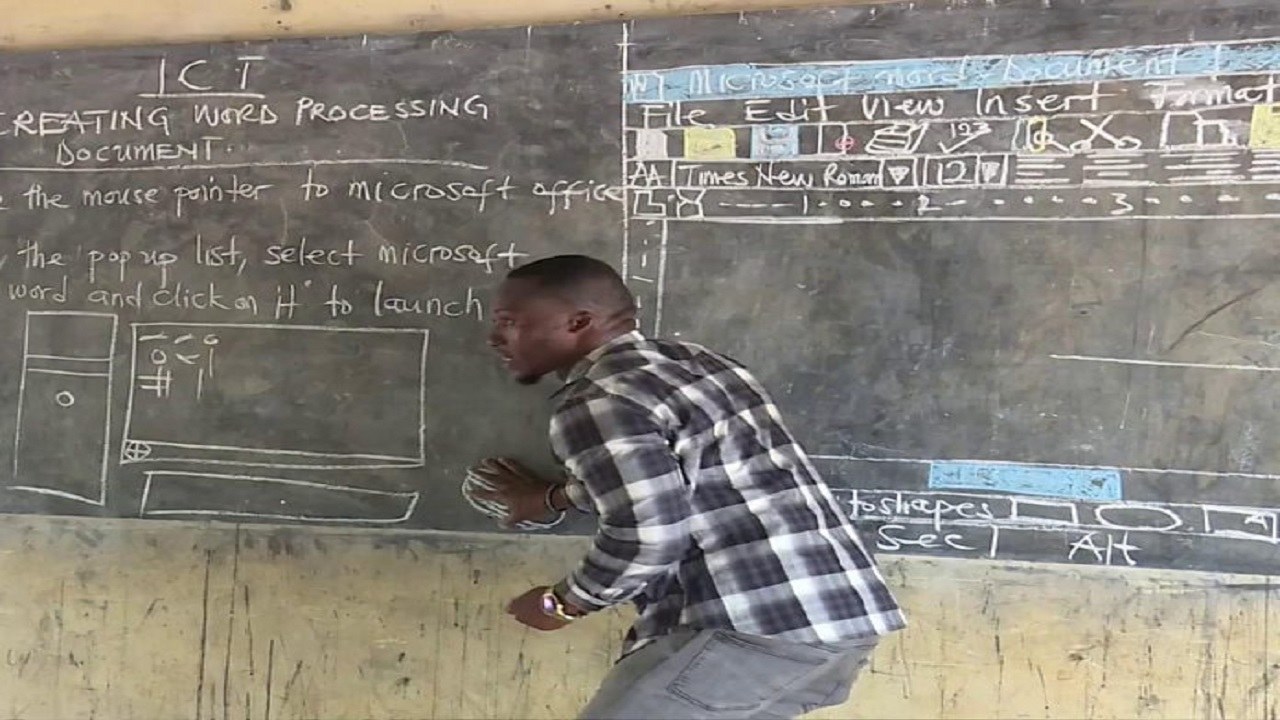 ICT
CREATING WORD PROCESSING
DOCUMENT
the mouse pointer to microsoft office
the pop up list, select microsoft
word and click on it to launch
W Microsoft word Document 1
File Edit View Insert Format
123
AA Times New Roman 12
1 2 3
toshapes
Sec 1 Alt